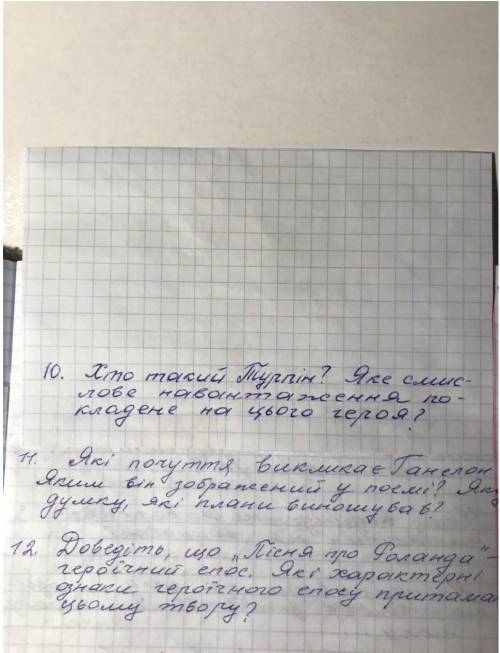 10. Хто такий Турпін? Яке смис-
лове навантаження по-
кладене на цього героя?
11. Які почуття викликає Ганелон
Яким він зображений у поемі? Яку
думку, які плани виношував?
12. Доведіть, що „Пісня про Роланда"
героїчний епос. Які характерні
ознаки героїчного епосу притама
цьому твору?